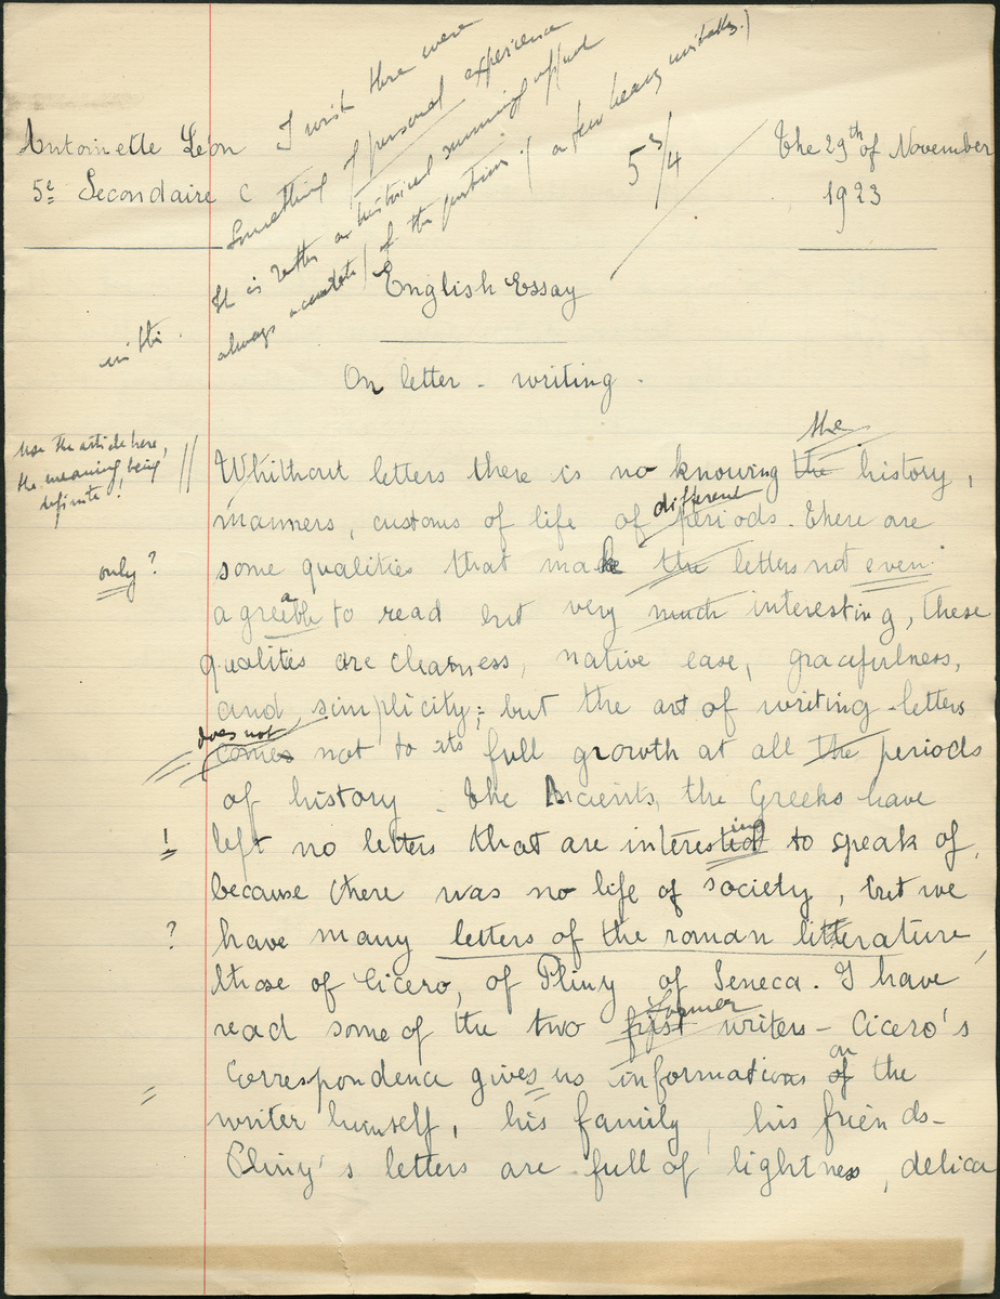 I wish there were
something of personal experience
It is rather a historical summing up (not
always accurate) of the question. (a few heavy mistakes.)
Antoinette Léon
5e Secondaire C
5 3/4
The 29th of November
1923
English Essay
in the.
On letter - writing.
Use the article here,
the meaning being
definite!
the
Whithout letters there is no knowing the history,
different
manners, customs of life of periods. There are
only?
some qualities that make the letters not even
agreable to read but very much interesting, these
qualities are clearness, native ease, gracefulness,
and simplicity; but the art of writing-letters
does not
comes not to its full growth at all the periods
of history - The Ancients, the Greeks have
ing
! left no letters that are interested to speak of,
because there was no life of society, but we
? have many letters of the roman litterature,
those of Cicero, of Pliny of Seneca. I have
former
read some of the two first writers - Cicero's
on
Correspondence gives us informations of the
writer himself, his family, his friends-
Pliny's letters are full of lightness, delica